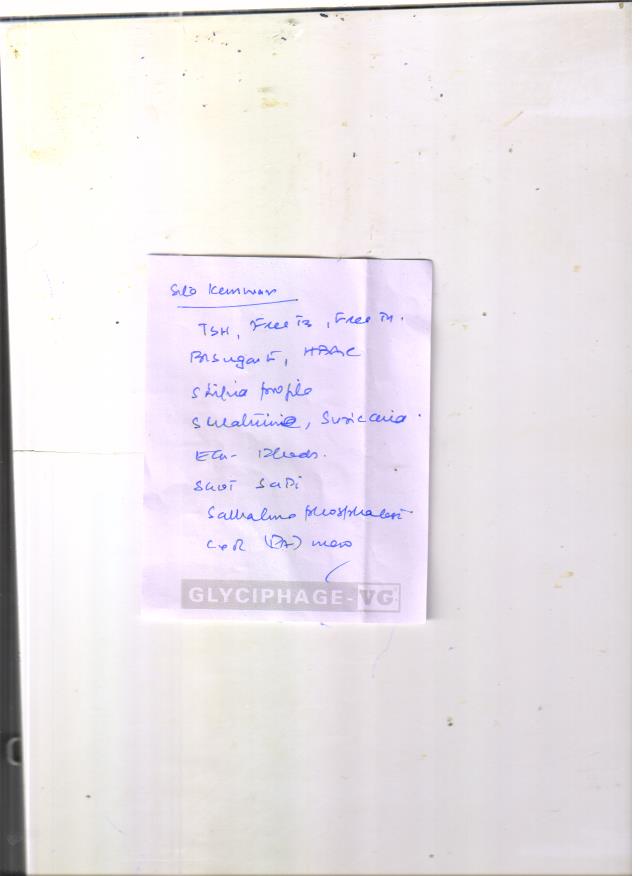 TSH, Free T3, Free T4.
B. Sugar F, HBA1C
S lipid profile
S creatinine, S uric acid.
ECG - 12 leads.
SGOT SGPT
S alkaline phosphatase
CXR (PA) view
GLYCIPHAGE-VG